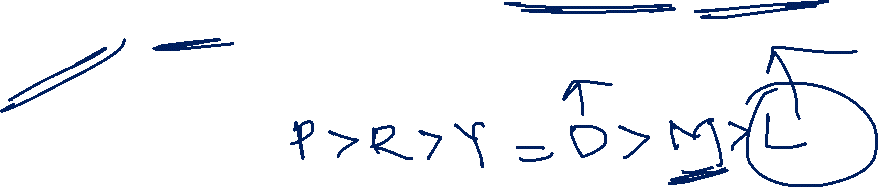 P > R > Y = D > M > L